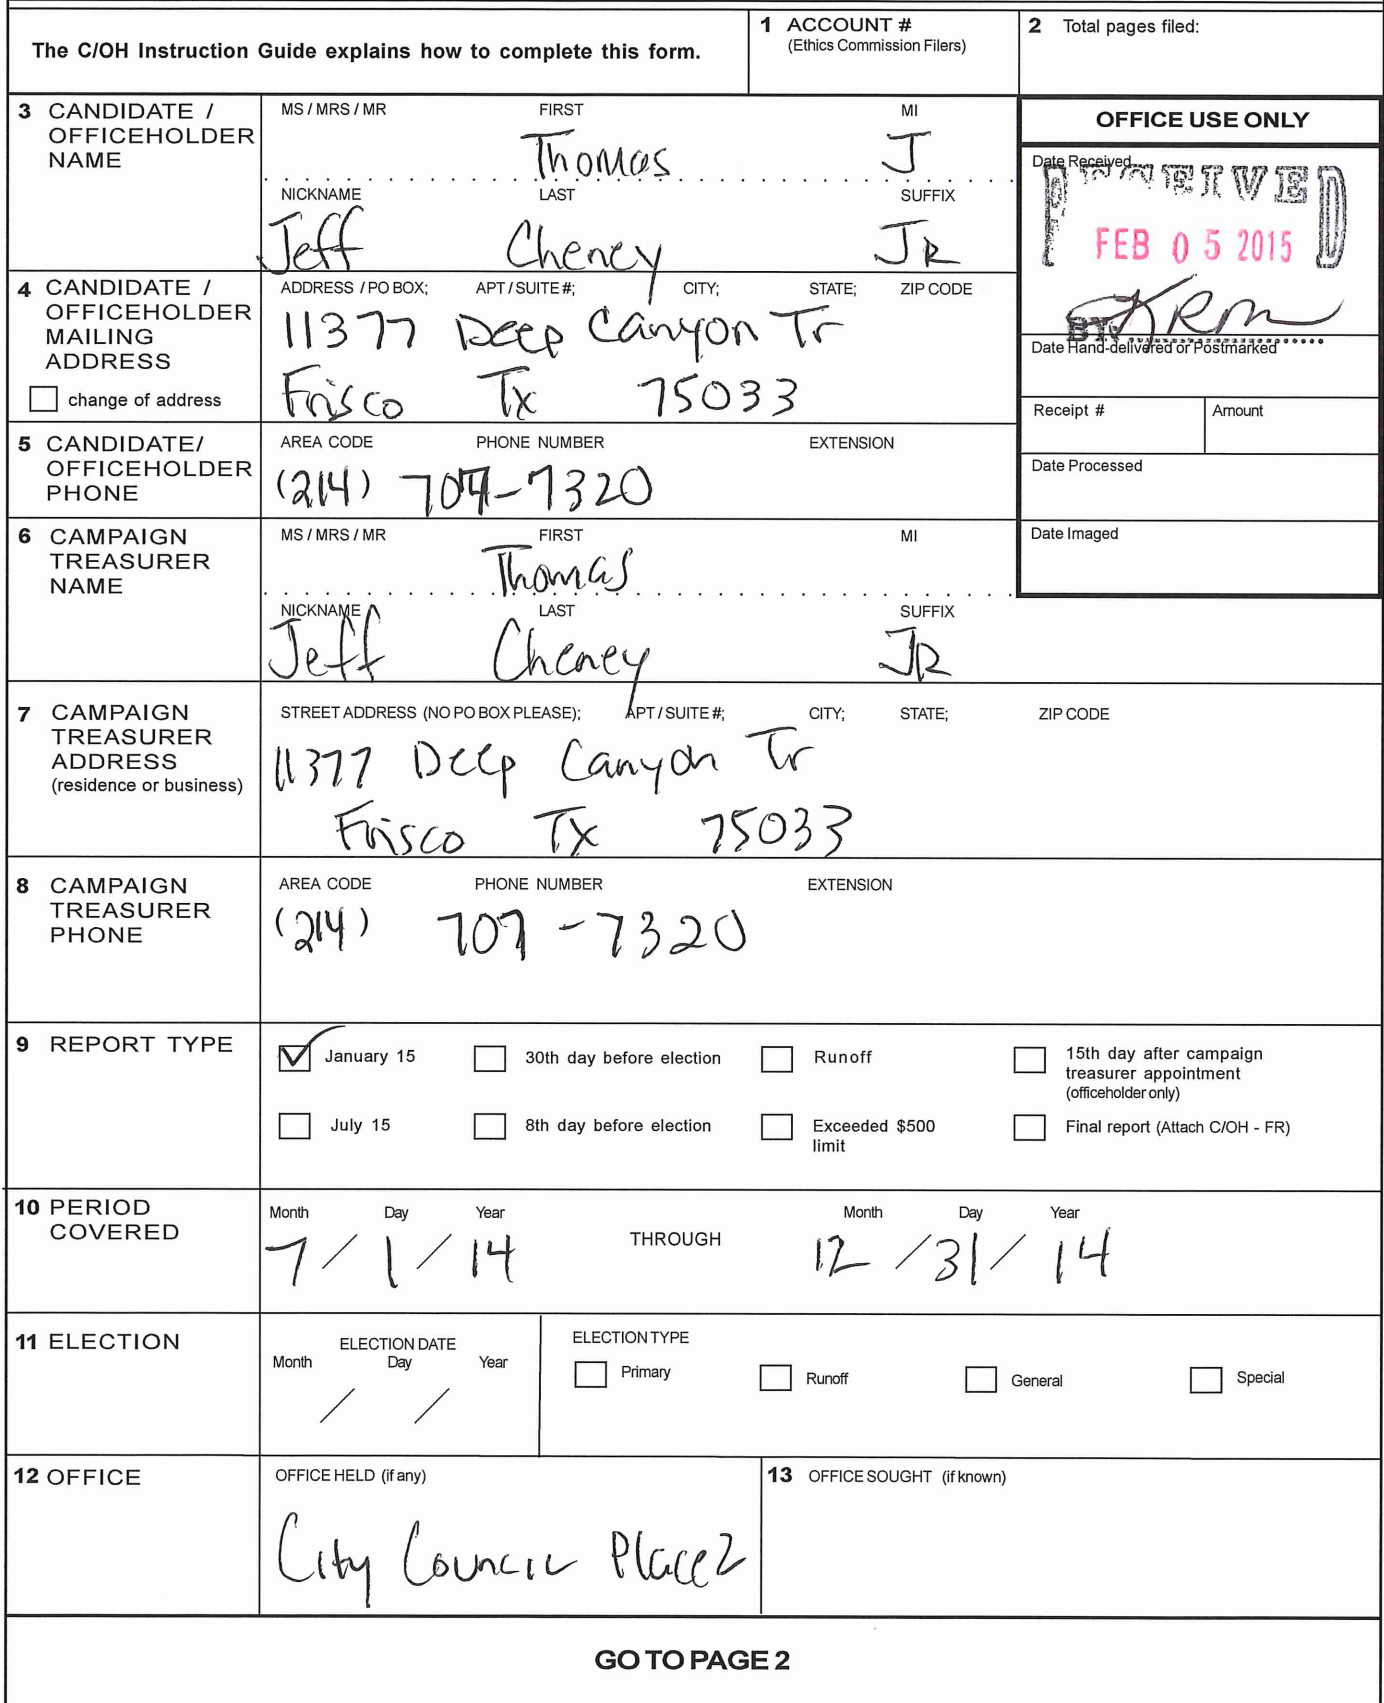 The C/OH Instruction Guide explains how to complete this form.
1 ACCOUNT #
(Ethics Commission Filers)
2 Total pages filed:
3 CANDIDATE /
OFFICEHOLDER
NAME
MS / MRS / MR FIRST MI
Thomas J
NICKNAME LAST SUFFIX
Jeff Cheney JR
OFFICE USE ONLY
Date Received
RECEIVED
FEB 05 2015
BY:
Date Hand-delivered or Postmarked
Receipt # Amount
Date Processed
Date Imaged
4 CANDIDATE /
OFFICEHOLDER
MAILING
ADDRESS
change of address
ADDRESS / PO BOX; APT / SUITE #; CITY; STATE; ZIP CODE
11377 Deep Canyon Tr
Frisco Tx 75033
5 CANDIDATE/
OFFICEHOLDER
PHONE
AREA CODE PHONE NUMBER EXTENSION
(214) 707-7320
6 CAMPAIGN
TREASURER
NAME
MS / MRS / MR FIRST MI
Thomas
NICKNAME LAST SUFFIX
Jeff Cheney JR
7 CAMPAIGN
TREASURER
ADDRESS
(residence or business)
STREET ADDRESS (NO PO BOX PLEASE); APT / SUITE #; CITY; STATE; ZIP CODE
11377 Deep Canyon Tr
Frisco Tx 75033
8 CAMPAIGN
TREASURER
PHONE
AREA CODE PHONE NUMBER EXTENSION
(214) 707-7320
9 REPORT TYPE
January 15 30th day before election Runoff 15th day after campaign
treasurer appointment
(officeholder only)
July 15 8th day before election Exceeded $500
limit
Final report (Attach C/OH - FR)
10 PERIOD
COVERED
Month Day Year THROUGH Month Day Year
7 / 1 / 14 12 / 31 / 14
11 ELECTION
ELECTION DATE
Month Day Year
/ /
ELECTION TYPE
Primary Runoff General Special
12 OFFICE
OFFICE HELD (if any)
City Council Place 2
13 OFFICE SOUGHT (if known)
GO TO PAGE 2